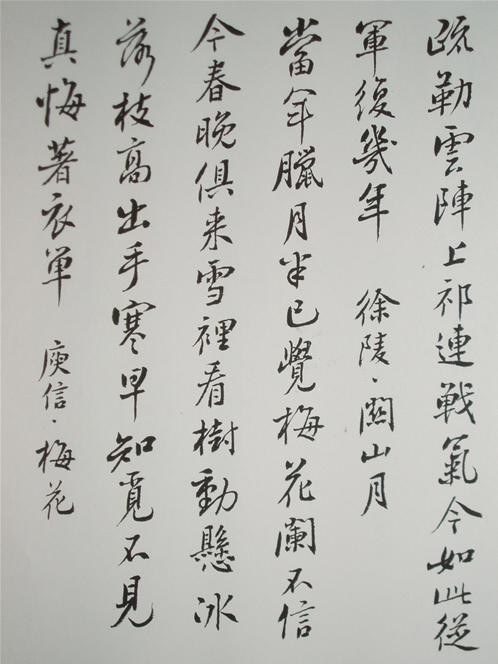 疏勒雲陣上祁連戰氣今如此從
軍復幾年 徐陵·關山月
當年臘月半已覺梅花闌不信
今春晚俱来雪裡看樹動懸冰
落枝高出手寒早知覓不見
真悔著衣单 庾信·梅花